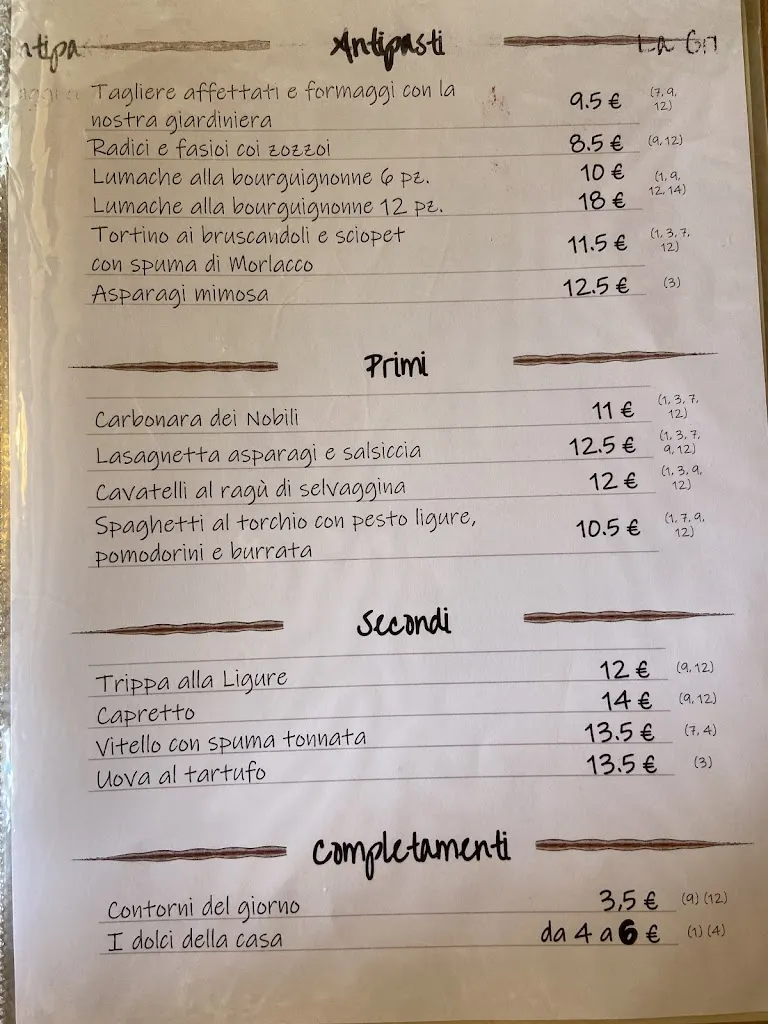 Antipasti
Tagliere affettati e formaggi con la
nostra giardiniera
9.5 € (7, 9,
12)
Radici e fasioi coi zozzoi 8.5 € (9, 12)
Lumache alla bourguignonne 6 pz. 10 € (1, 9,
Lumache alla bourguignonne 12 pz. 18 € 12, 14)
Tortino ai bruscandoli e sciopet
con spuma di Morlacco
11.5 € (1, 3, 7,
12)
Asparagi mimosa 12.5 € (3)
Primi
Carbonara dei Nobili 11 € (1, 3, 7,
12)
Lasagnetta asparagi e salsiccia 12.5 € (1, 3, 7,
9, 12)
Cavatelli al ragù di selvaggina 12 € (1, 3, 9,
12)
Spaghetti al torchio con pesto ligure,
pomodorini e burrata
10.5 € (1, 7, 9,
12)
Secondi
Trippa alla Ligure 12 € (9, 12)
Capretto 14 € (9, 12)
Vitello con spuma tonnata 13.5 € (7, 4)
Uova al tartufo 13.5 € (3)
Completamenti
Contorni del giorno 3,5 € (9) (12)
I dolci della casa da 4 a 6 € (1) (4)